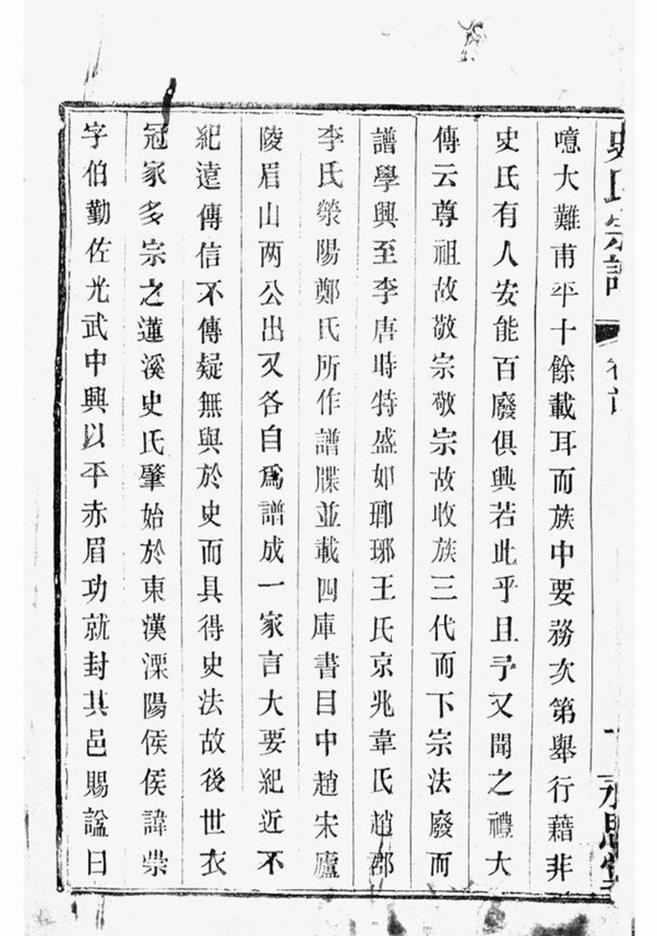 史氏宗譜
卷首
噫大難甫平十餘載耳而族中要務次第舉行藉非
史氏有人安能百廢俱興若此乎且予又聞之禮大
傳云尊祖故敬宗敬宗故收族三代而下宗法廢而
譜學興至李唐時特盛如瑯琊王氏京兆韋氏趙郡
李氏滎陽鄭氏所作譜牒並載四庫書目中趙宋廬
陵眉山两公出又各自爲譜成一家言大要紀近不
紀遠傳信不傳疑無與於史而具得史法故後世衣
冠家多宗之蓮溪史氏肇始於東漢溧陽侯侯諱崇
字伯勤佐光武中興以平赤眉功就封其邑賜諡曰